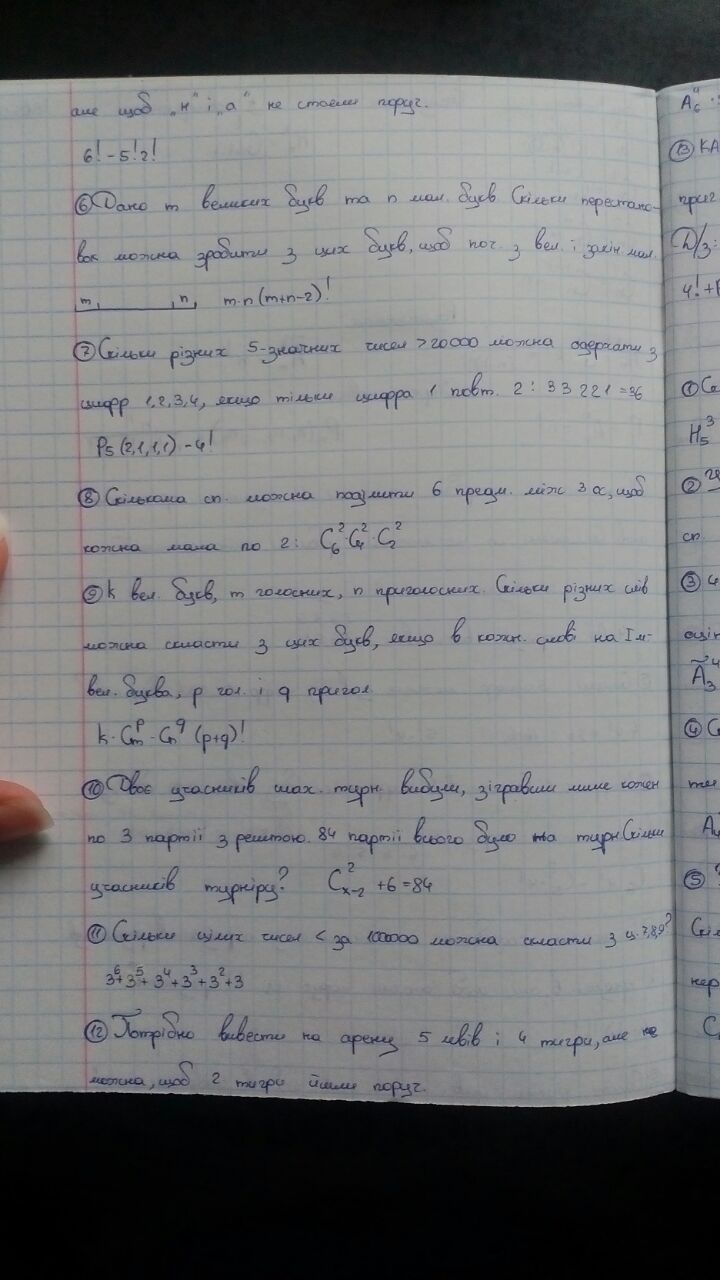 але щоб „н" і „а" не стояли поруч.
6! - 5!2!
⑥ Дано m великих букв та n мал. букв. Скільки перестано-
вок можна зробити з цих букв, щоб поч. з вел. і закін мал.
m, n, m·n(m+n-2)!
⑦ Скільки різних 5-значних чисел >20000 можна одержати з
цифр 1,2,3,4, якщо тільки цифра 1 повт. 2: 33 221 = 36
P5(2,1,1,1) - 4!
⑧ Скількома сп. можна поділити 6 предм. між 3 ос, щоб
кожна мала по 2: C₆²·C₄²·C₂²
⑨ k вел. букв, m голосних, n приголосних. Скільки різних слів
можна скласти з цих букв, якщо в кожн. слові на I м-
вел. буква, p гол. і q пригол.
k·Cₘᵖ·Cₙ^q (p+q)!
⑩ Двоє учасників шах. турн. вибули, зігравши лише кожен
по 3 партії з рештою. 84 партії всього було на турн. Скільки
учасників турніру? C²ₓ₋₂ + 6 = 84
⑪ Скільки цілих чисел < за 1000000 можна скласти з ц. 7,8,9?
3⁶+3⁵+3⁴+3³+3²+3
⑫ Потрібно вивести на арену 5 левів і 4 тигри, але не
можна, щоб 2 тигри йшли поруч.
A₆⁴
⑬ КА
приг
Д/з:
4!+
①
H₅³
②
сп
③ 4
оцін
Ã₃⁴
④ С
ти
⑤
Скіл
нер
С